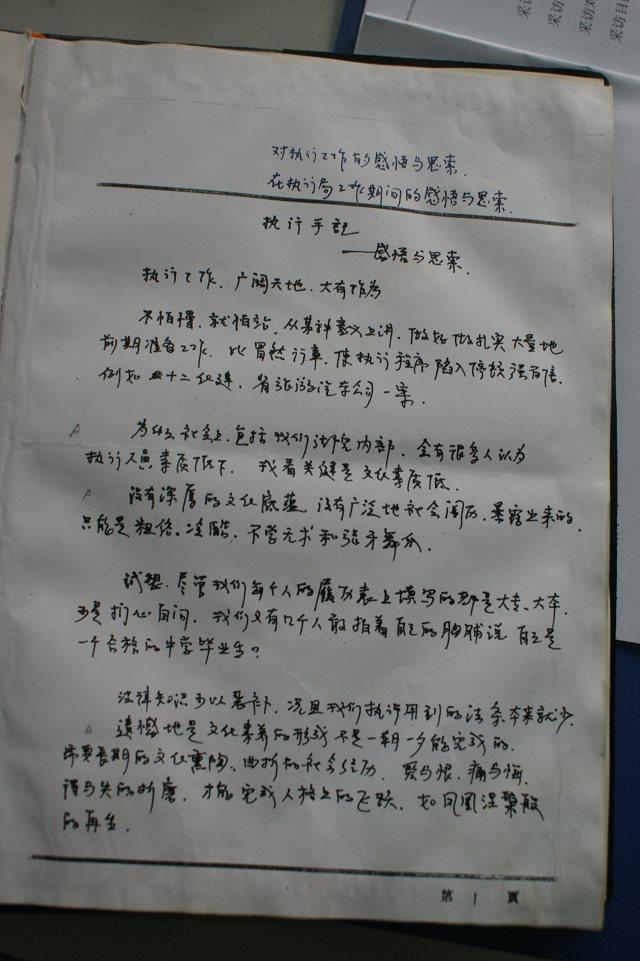 采访
采访
采访对
采访日
对执行工作的感悟与思索.
在执行局工作期间的感悟与思索.
执行手记
——感悟与思索.
执行工作，广阔天地，大有作为
不怕慢，就怕站，从某种意义上讲，做好做扎实大量地
前期准备工作，比冒然行事，使执行程序陷入停顿强百倍.
例如四十二 汽车公司一案.
为什么社会上，包括我们法院内部，会有很多人认为
执行人员素质低下，我看关健是文化素质低.
没有深厚的文化底蕴，没有广泛地社会阅历，暴露出来的，
只能是粗俗、冷酷，不学无术和张牙舞爪.
试想，尽管我们每个人的履历表上填写的都是大专、大本，
可是扪心自问，我们又有几个人敢拍着自己的胸脯说自己是
一个合格的中学毕业生?
法律知识可以恶补，况且我们执行用到的法条本来就少.
遗憾地是文化素养的形成不是一朝一夕能完成的.
需要长期的文化熏陶、曲折的社会经历，爱与恨，痛与悔，
得与失的折磨，才能完成人格上的飞跃，如凤凰涅槃般
的再生.
第 1 页